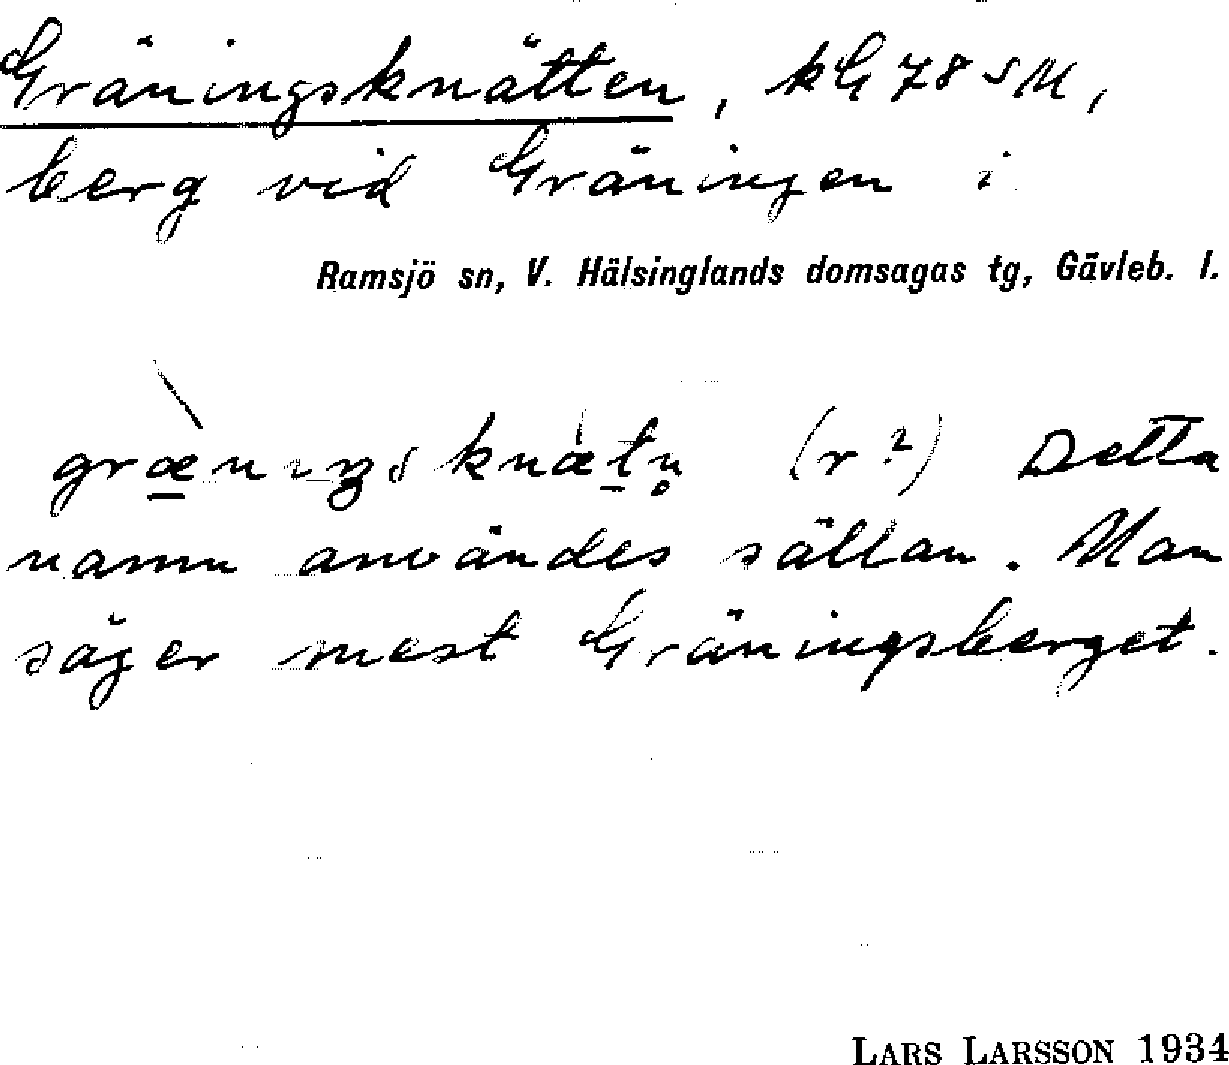 Gräningsknätten, kG 78 SM,
berg vid Gräningen i
Ramsjö sn, V. Hälsinglands domsagas tg, Gävleb. l.
grænıŋsknætn̥ (r²) Detta
namn användes sällan. Man
säger mest Gräningsberget.
LARS LARSSON 1934